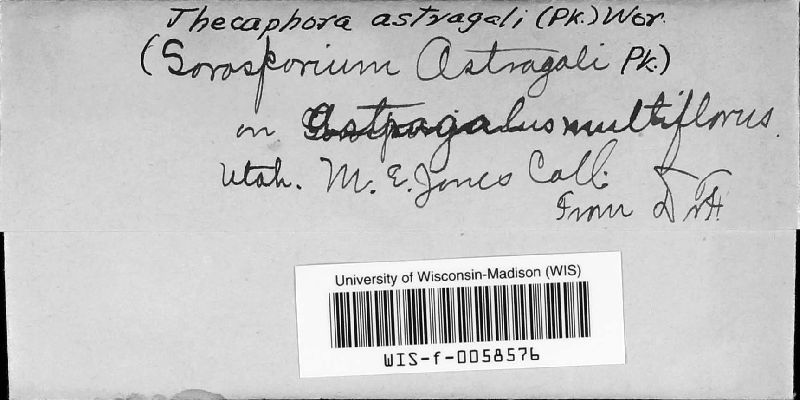 Thecaphora astragali (Pk.) Wor.
(Sorosporium Astragali Pk.)
on Astragalus multiflorus.
Utah. M. E. Jones Coll.
From
University of Wisconsin-Madison (WIS)
WIS-f-0058576